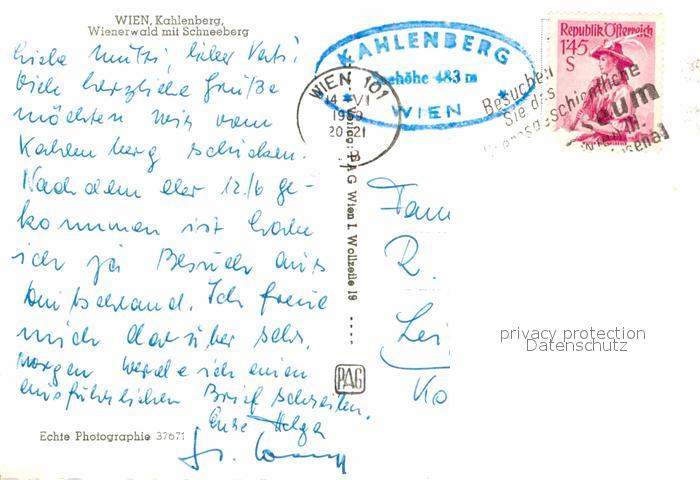 WIEN, Kahlenberg,
Wienerwald mit Schneeberg
Liebe Mutti, lieber Vati!
Viele herzliche Grüße
möchten wir vom
Kahlenberg schicken.
Nachdem der 12/6 ge-
kommen ist habe
ich ja Besuch aus
Deutschland. Ich freue
mich darüber sehr.
Morgen werde ich einen
ausführlichen Brief schreiben.
Eure Helga
Echte Photographie 37671
KAHLENBERG
Seehöhe 483 m
WIEN
WIEN 101
14. VI
1959
20-21
Verlag: PAG Wien I. Wollzeile 19
PAG
Besuchen
Sie das
Heeresgeschichtliche
Museum
Wien III.
Arsenal
Republik Österreich
1·45
S
Fam
R.
Lei
Ko
privacy protection
Datenschutz